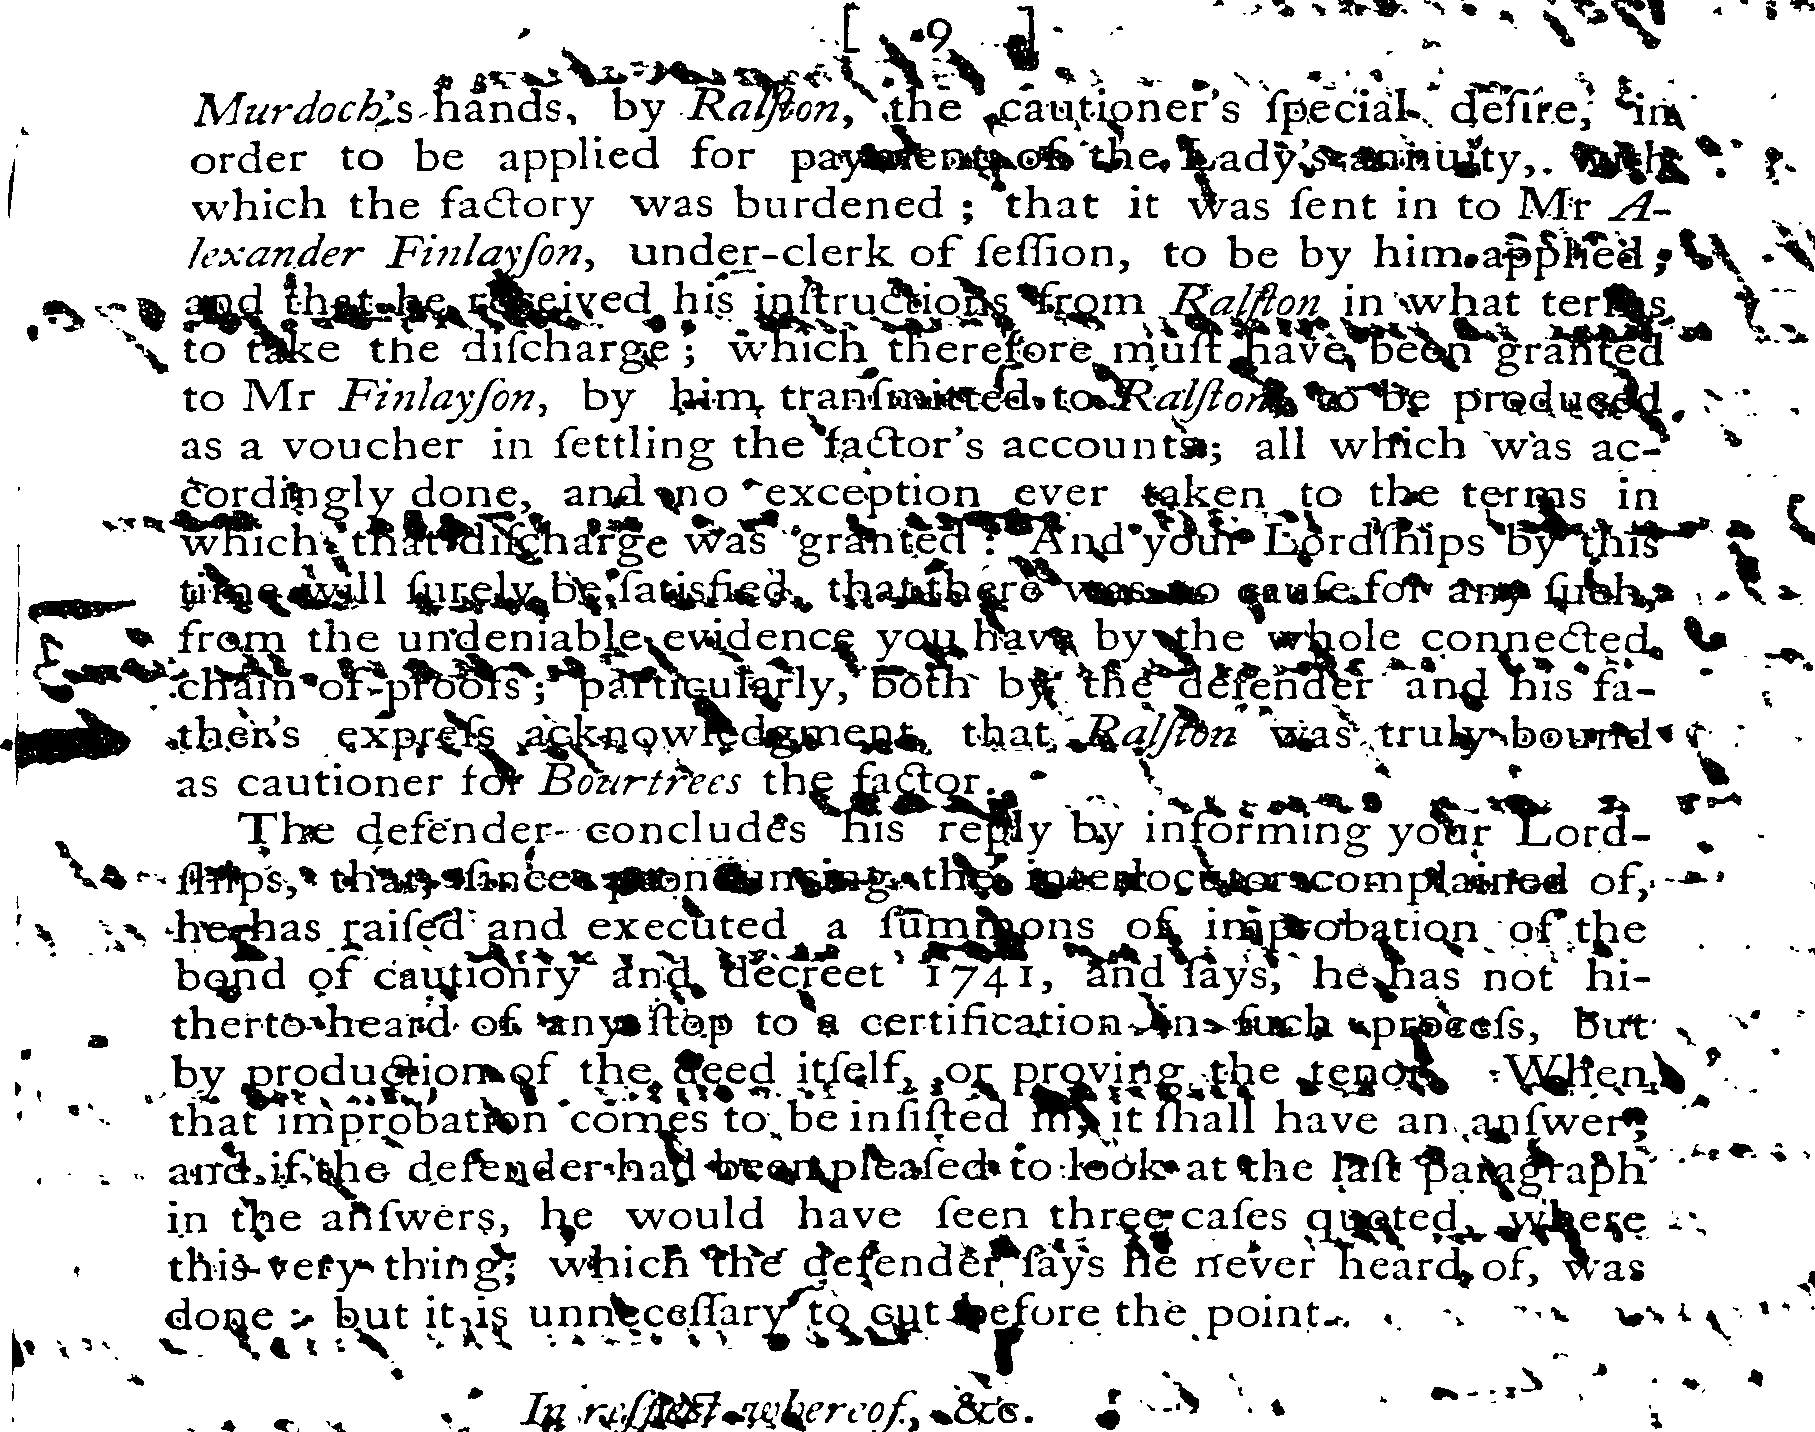 [ 9 ]
Murdoch's hands, by Ralſton, the cautioner's ſpecial deſire, in
order to be applied for payment of the Lady's annuity, with
which the factory was burdened; that it was ſent in to Mr A-
lexander Finlayſon, under-clerk of ſeſſion, to be by him applied;
and that he received his inſtructions from Ralſton in what terms
to take the diſcharge; which therefore muſt have been granted
to Mr Finlayſon, by him tranſmitted to Ralſton, to be produced
as a voucher in ſettling the factor's accounts; all which was ac-
cordingly done, and no exception ever taken to the terms in
which that diſcharge was granted: And your Lordſhips by this
time will ſurely be ſatisfied, that there was no cauſe for any ſuch,
from the undeniable evidence you have by the whole connected
chain of proofs; particularly, both by the defender and his fa-
ther's expreſs acknowledgment, that Ralſton was truly bound
as cautioner for Bourtrees the factor.
The defender concludes his reply by informing your Lord-
ſhips, that, ſince pronouncing the interlocutors complained of,
he has raiſed and executed a ſummons of improbation of the
bond of cautionry and decreet 1741, and ſays, he has not hi-
therto heard of any ſtop to a certification in ſuch proceſs, but
by production of the deed itſelf, or proving the tenor. When
that improbation comes to be inſiſted in, it ſhall have an anſwer;
and if the defender had been pleaſed to look at the laſt paragraph
in the anſwers, he would have ſeen three caſes quoted, where
this very thing, which the defender ſays he never heard of, was
done: but it is unneceſſary to cut before the point.
In reſpect whereof, &c.